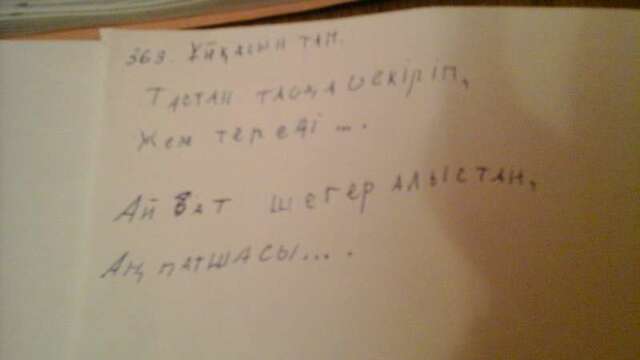 369. Ұйқасын тап.
Тастан тасқа секіріп,
Жем тереді ... .
Айбат шегер алыстан,
Аң патшасы ... .